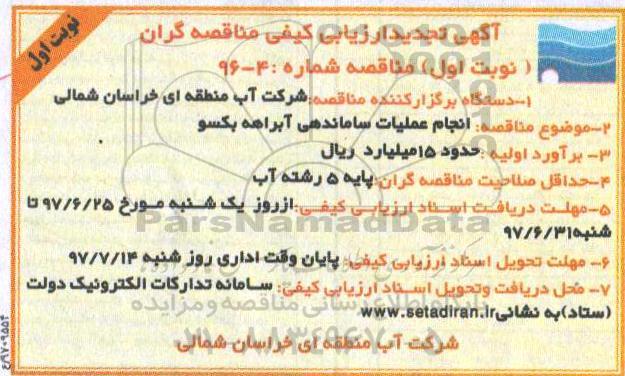 نوبت اول
آگهی تجدیدارزیابی کیفی مناقصه گران
( نوبت اول) مناقصه شماره :۴-۹۶
۱-دستگاه برگزارکننده مناقصه:شرکت آب منطقه ای خراسان شمالی
۲-موضوع مناقصه: انجام عملیات ساماندهی آبراهه بکسو
۳- برآورد اولیه :حدود ۱۵میلیارد ریال
۴-حداقل صلاحیت مناقصه گران:پایه ۵ رشته آب
۵-مهلت دریافت اسناد ارزیابی کیفی:ازروز یک شنبه مورخ ۹۷/۶/۲۵ تا
شنبه۹۷/۶/۳۱
۶- مهلت تحویل اسناد ارزیابی کیفی: پایان وقت اداری روز شنبه ۹۷/۷/۱۴
۷- محل دریافت وتحویل اسناد ارزیابی کیفی: سامانه تدارکات الکترونیک دولت
(ستاد)به نشانیwww.setadiran.ir
شرکت آب منطقه ای خراسان شمالی
ParsNamadData
پایگاه اطلاع رسانی مناقصه و مزایده
۰۲۱-۸۸۳۴۹۶۷۰-۵
۹۷۰۹۵۵۴/ع